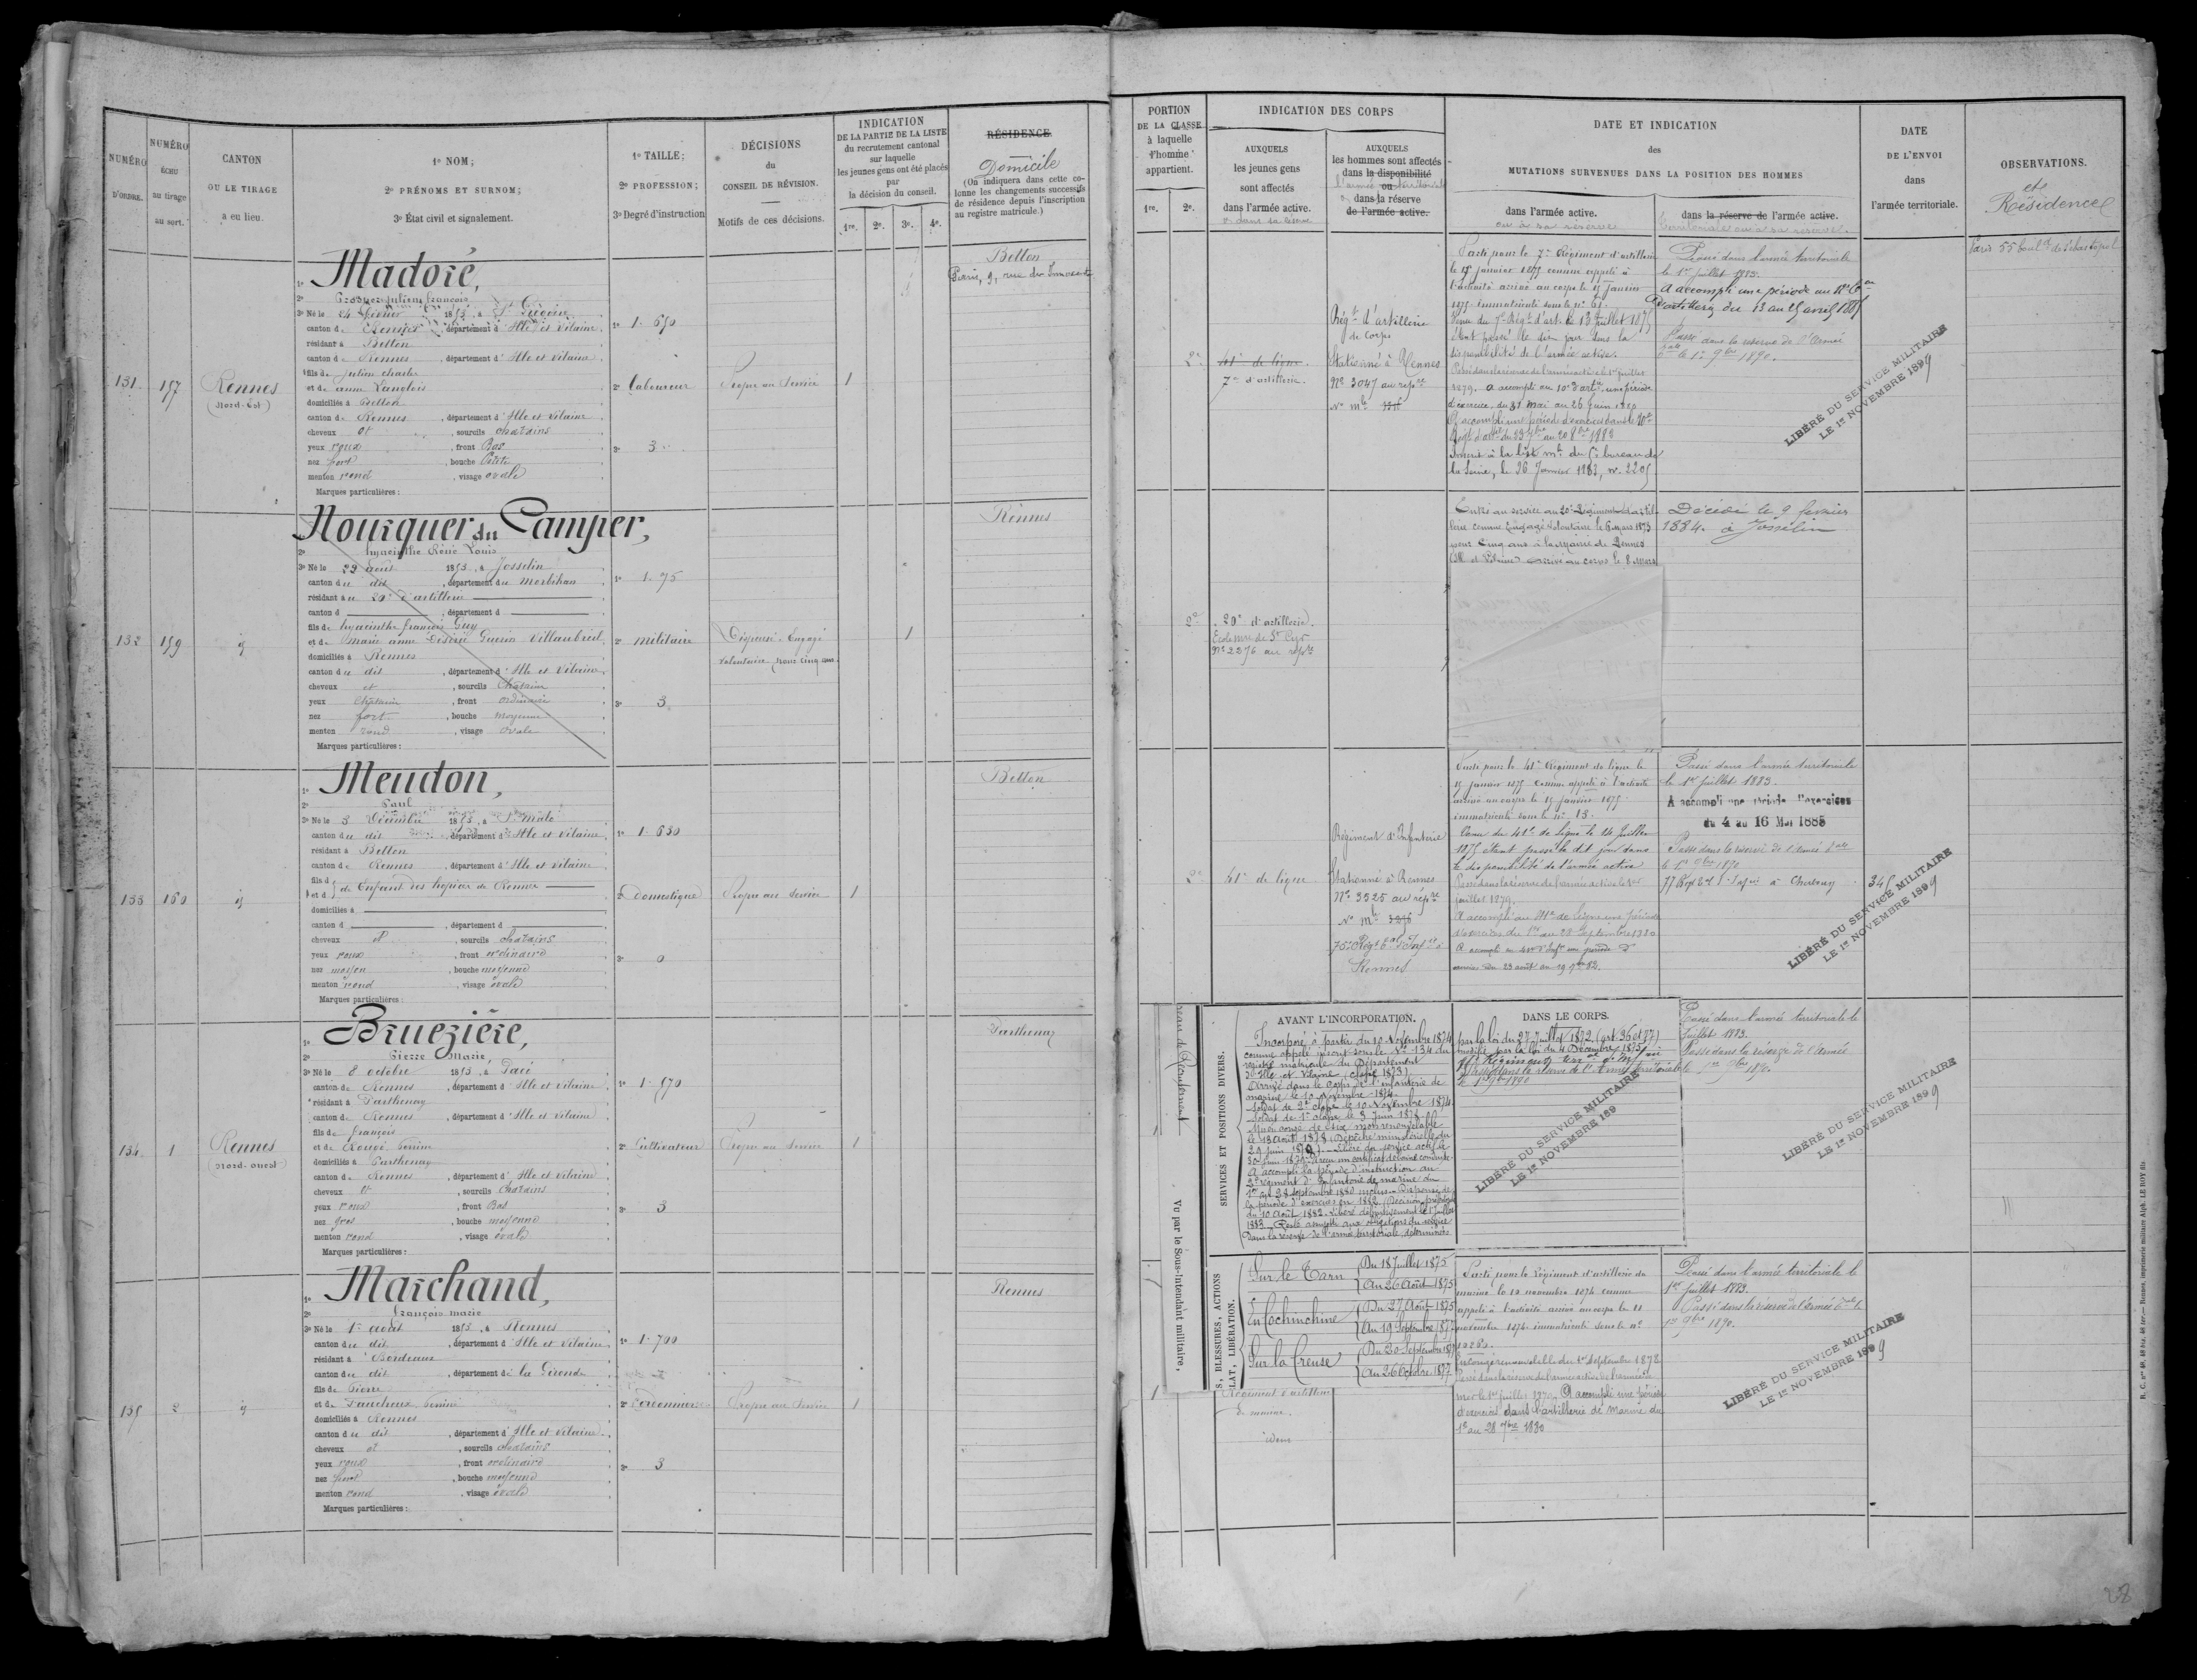 NUMÉRO
D'ORDRE.
NUMÉRO
ÉCHU
au tirage
au sort.
CANTON
OU LE TIRAGE
a eu lieu.
1º NOM;
2º PRÉNOMS ET SURNOM;
3º État civil et signalement.
1º TAILLE;
2º PROFESSION;
3º Degré d'instruction
DÉCISIONS
du
CONSEIL DE RÉVISION.
Motifs de ces décisions.
INDICATION
DE LA PARTIE DE LA LISTE
du recrutement cantonal
sur laquelle
les jeunes gens ont été placés
par
la décision du conseil.
1re. 2e. 3e. 4e.
RÉSIDENCE
Domicile
(On indiquera dans cette co-
lonne les changements successifs
de résidence depuis l'inscription
au registre matricule.)
131
157
Rennes
(Nord-Est)
1º Madoré,
2º Prosper Julien françois
3º Né le 24 février 1853, à St Grégoire
canton de Rennes, département d'Ille et Vilaine
résidant à Betton
canton de Rennes, département d'Ille et Vilaine
fils de Julien charles
et de anne Langlois
domiciliés à Betton
canton de Rennes, département d'Ille et Vilaine
cheveux et, sourcils chatains
yeux roux, front Bas
nez fort, bouche Petite
menton rond, visage ovale
Marques particulières:
1º 1.650
2º laboureur
3º 3
Propre au Service
1
Betton
Paris, 9, rue des Innocents
132
159
id
Nourquer du Camper,
2º hyacinthe Réné Louis
3º Né le 29 août 1853, à Josselin
canton du dit, département du Morbihan
résidant à au 20e d'artillerie
canton d, département d
fils de hyacinthe françois Guy
et de Marie anne Désirée Guérin Villaubreil
domiciliés à Rennes
canton du dit, département d'Ille et Vilaine
cheveux et, sourcils Chatain
yeux Chatain, front ordinaire
nez fort, bouche moyenne
menton rond, visage Ovale
Marques particulières:
1º 1.75
2º militaire
3º 3
Dispensé - Engagé
volontaire pour cinq ans
1
Rennes
133
160
id
1º Meudon,
2º Paul
3º Né le 3 Décembre 1853, à St Malo
canton du dit, département d'Ille et Vilaine
résidant à Betton
canton de Rennes, département d'Ille et Vilaine
fils d
et d de Enfant des hospices de Rennes
domiciliés à
canton d, département d
cheveux et, sourcils chatains
yeux roux, front ordinaire
nez moyen, bouche moyenne
menton rond, visage ovale
Marques particulières:
1º 1.630
2º domestique
3º 0
Propre au Service
1
Betton
134
1
Rennes
(Nord-ouest)
1º Bruezière,
2º Pierre Marie,
3º Né le 8 octobre 1853, à Pacé
canton de Rennes, département d'Ille et Vilaine
résidant à Parthenay
canton de Rennes, département d'Ille et Vilaine
fils de françois
et de Rougé Perrine
domiciliés à Parthenay
canton de Rennes, département d'Ille et Vilaine
cheveux et, sourcils Chatains
yeux roux, front Bas
nez gros, bouche moyenne
menton rond, visage ovale
Marques particulières:
1º 1.570
2º Cultivateur
3º 3
Propre au Service
1
Parthenay
135
2
id
1º Marchand,
2º françois marie
3º Né le 1er août 1853, à Rennes
canton du dit, département d'Ille et Vilaine
résidant à Bordeaux
canton du dit, département de la Gironde
fils de Pierre
et de Faucheux Perrine
domiciliés à Rennes
canton du dit, département d'Ille et Vilaine
cheveux et, sourcils chatains
yeux roux, front ordinaire
nez fort, bouche moyenne
menton rond, visage ovale
Marques particulières:
1º 1.700
2º Cordonnier
3º 3
Propre au Service
1
Rennes
PORTION
DE LA CLASSE
à laquelle
l'homme
appartient.
1re. 2e.
INDICATION DES CORPS
AUXQUELS
les jeunes gens
sont affectés
dans l'armée active.
ou dans sa réserve
AUXQUELS
les hommes sont affectés
dans la disponibilité
ou
l'armée territoriale
dans la réserve
de l'armée active.
DATE ET INDICATION
des
MUTATIONS SURVENUES DANS LA POSITION DES HOMMES
dans l'armée active.
ou à sa réserve
dans la réserve de l'armée active.
territoriale ou à sa réserve.
DATE
DE L'ENVOI
dans
l'armée territoriale.
OBSERVATIONS.
et
Résidence
2e
41e de ligne
7e d'artillerie.
Régt d'artillerie
de corps
Stationné à Rennes
Nº 3047 au répre
Nº mle
Parti pour le 7e Régiment d'artillerie
le 15 janvier 1875 comme appelé à
l'activité arrivé au corps le 15 janvier
1875. Immatriculé sous le nº 61.
Venu du 7e Régt d'art. le 13 juillet 1875
étant passé le dit jour dans la
disponibilité de l'armée active.
Passé dans la réserve de l'armée active le 1er juillet
1879. A accompli au 10e d'artie une période
d'exercice, du 31 Mai au 26 Juin 1880
A accompli une période d'exercices dans le 10e
Inscrit à la liste mle du bureau de
la Seine, le 26 Janvier 1883, nº 2205
Passé dans l'armée territoriale
le 1er juillet 1883.
A accompli une période au
D'artillerie du 13 au 25 avril 1885
Passé dans la réserve de l'Armée
tale le 1er 9bre 1890.
LIBÉRÉ DU SERVICE MILITAIRE
LE 1er NOVEMBRE 1899
Paris 55 boulevd de Sébastopol
2e
20e d'artillerie.
Ecole mre de St Cyr
Nº 2276 au répre
Entré au service au 20e Régiment d'artil-
lerie comme Engagé Volontaire le 6 mars 1873
pour Cinq ans à la Mairie de Rennes
(Ille et Vilaine) arrivé au corps le 8 Mars
Décédé le 9 février
1884. à Josselin
2e
41e de ligne
Régiment d'Infanterie
Stationné à Rennes
Nº 3525 au répre
Nº mle
75e Régt tal d'Infie à
Rennes
Parti pour le 41e Régiment de ligne le
15 janvier 1875 comme appelé à l'activité
arrivé au corps le 15 janvier 1875.
immatriculé sous le nº 13.
Venu du 41e de ligne le 14 Juillet
1875 étant passé le dit jour dans
la disponibilité de l'armée active
Passé dans la réserve de l'armée active le 1er
juillet 1879.
A accompli au 41e de ligne une période
d'exercices du 1er au 28 Septembre 1880
A accompli au 41e d'Infie une période d'
exercices du 23 août au 19 7bre 82.
Passé dans l'armée territoriale
le 1er Juillet 1883.
A accompli une période d'exercices
du 4 au 16 Mai 1885
Passé dans la réserve de l'Armée tale
le 1er 9bre 1890
77 Regt tal d'Infie à Cholet
LIBÉRÉ DU SERVICE MILITAIRE
LE 1er NOVEMBRE 1899
SERVICES ET POSITIONS DIVERS.
AVANT L'INCORPORATION.
Incorporé à partir du 10 Novembre 1874
comme appelé inscrit sous le Nº 134 du
registre matricule du Département
d'Ille et Vilaine (classe 1873)
Arrivé dans le Corps de l'infanterie de
marine le 10 Novembre 1874.
Soldat de 2e classe le 10 Novembre 1874
Soldat de 1e classe le 3 Juin 1878
Mis en congé de six mois renouvelable
le 13 août 1878 (Dépêche ministérielle du
29 Juin 1878). Libéré du service actif le
30 Juin 1879.
A accompli la période d'instruction au
2e régiment d'Infanterie de marine du
1er au 28 Septembre 1880 inclus. Dispensé de
la période d'exercices en 1882 (Décision
du 10 Août 1882. Libéré définitivement le 1er Juillet
1883. Reste assujetti aux obligations du service
dans la réserve de l'armée territoriale, déterminées
DANS LE CORPS.
par la loi du 27 Juillet 1872 (art. 36 et 77)
modifiée par la loi du 4 Décembre 1875
Passé dans la réserve de l'Armée territoriale
le 1er 9bre 1890
LIBÉRÉ DU SERVICE MILITAIRE
LE 1er NOVEMBRE 189
Passé dans l'armée territoriale le
Juillet 1883.
Passé dans la réserve de l'Armée
le 1er 9bre 1890.
LIBÉRÉ DU SERVICE MILITAIRE
LE 1er NOVEMBRE 1899
Vu par le Sous-intendant militaire,
BLESSURES, ACTIONS
LIBÉRATION.
Sur le Tarn
Du 18 Juillet 1875
Au 26 Août 1875
En Cochinchine
Du 27 Août 1875
Au 19 Septembre 1877
Sur la Creuse
Du 20 Septembre 1877
Au 26 Octobre 1877
1
Régiment d'artillerie
de marine.
idem
Parti pour le Régiment d'artillerie de
marine le 10 novembre 1874 comme
appelé à l'activité arrivé au corps le 11
novembre 1874. immatriculé sous le nº
En congé renouvelable du 1er Septembre 1878
A accompli une période
d'exercices dans l'artillerie de Marine du
1er au 28 7bre 1880
Passé dans l'armée territoriale le
1er Juillet 1883.
Passé dans la réserve de l'armée tale le
1er 9bre 1890.
LIBÉRÉ DU SERVICE MILITAIRE
LE 1er NOVEMBRE 1899
28